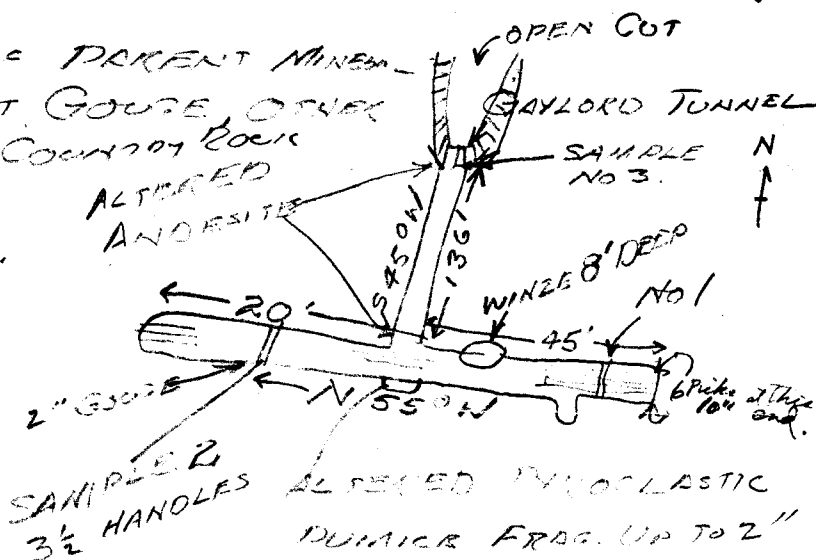 OPEN CUT
PARENT MINERA-
T GOUGE, OTHER
GAYLORD TUNNEL
COUNTRY ROCK
SAMPLE
NO 3.
N
ALTERED
ANDESITE
S45°W
136'
WINZE 8' DEEP
NO 1
20'
45'
2" GOUGE
N 55° W
10" at
end.
SAMPLE 2
3½ HANDLES
ALTERED PYROCLASTIC
PUMICE FRAG. UP TO 2"